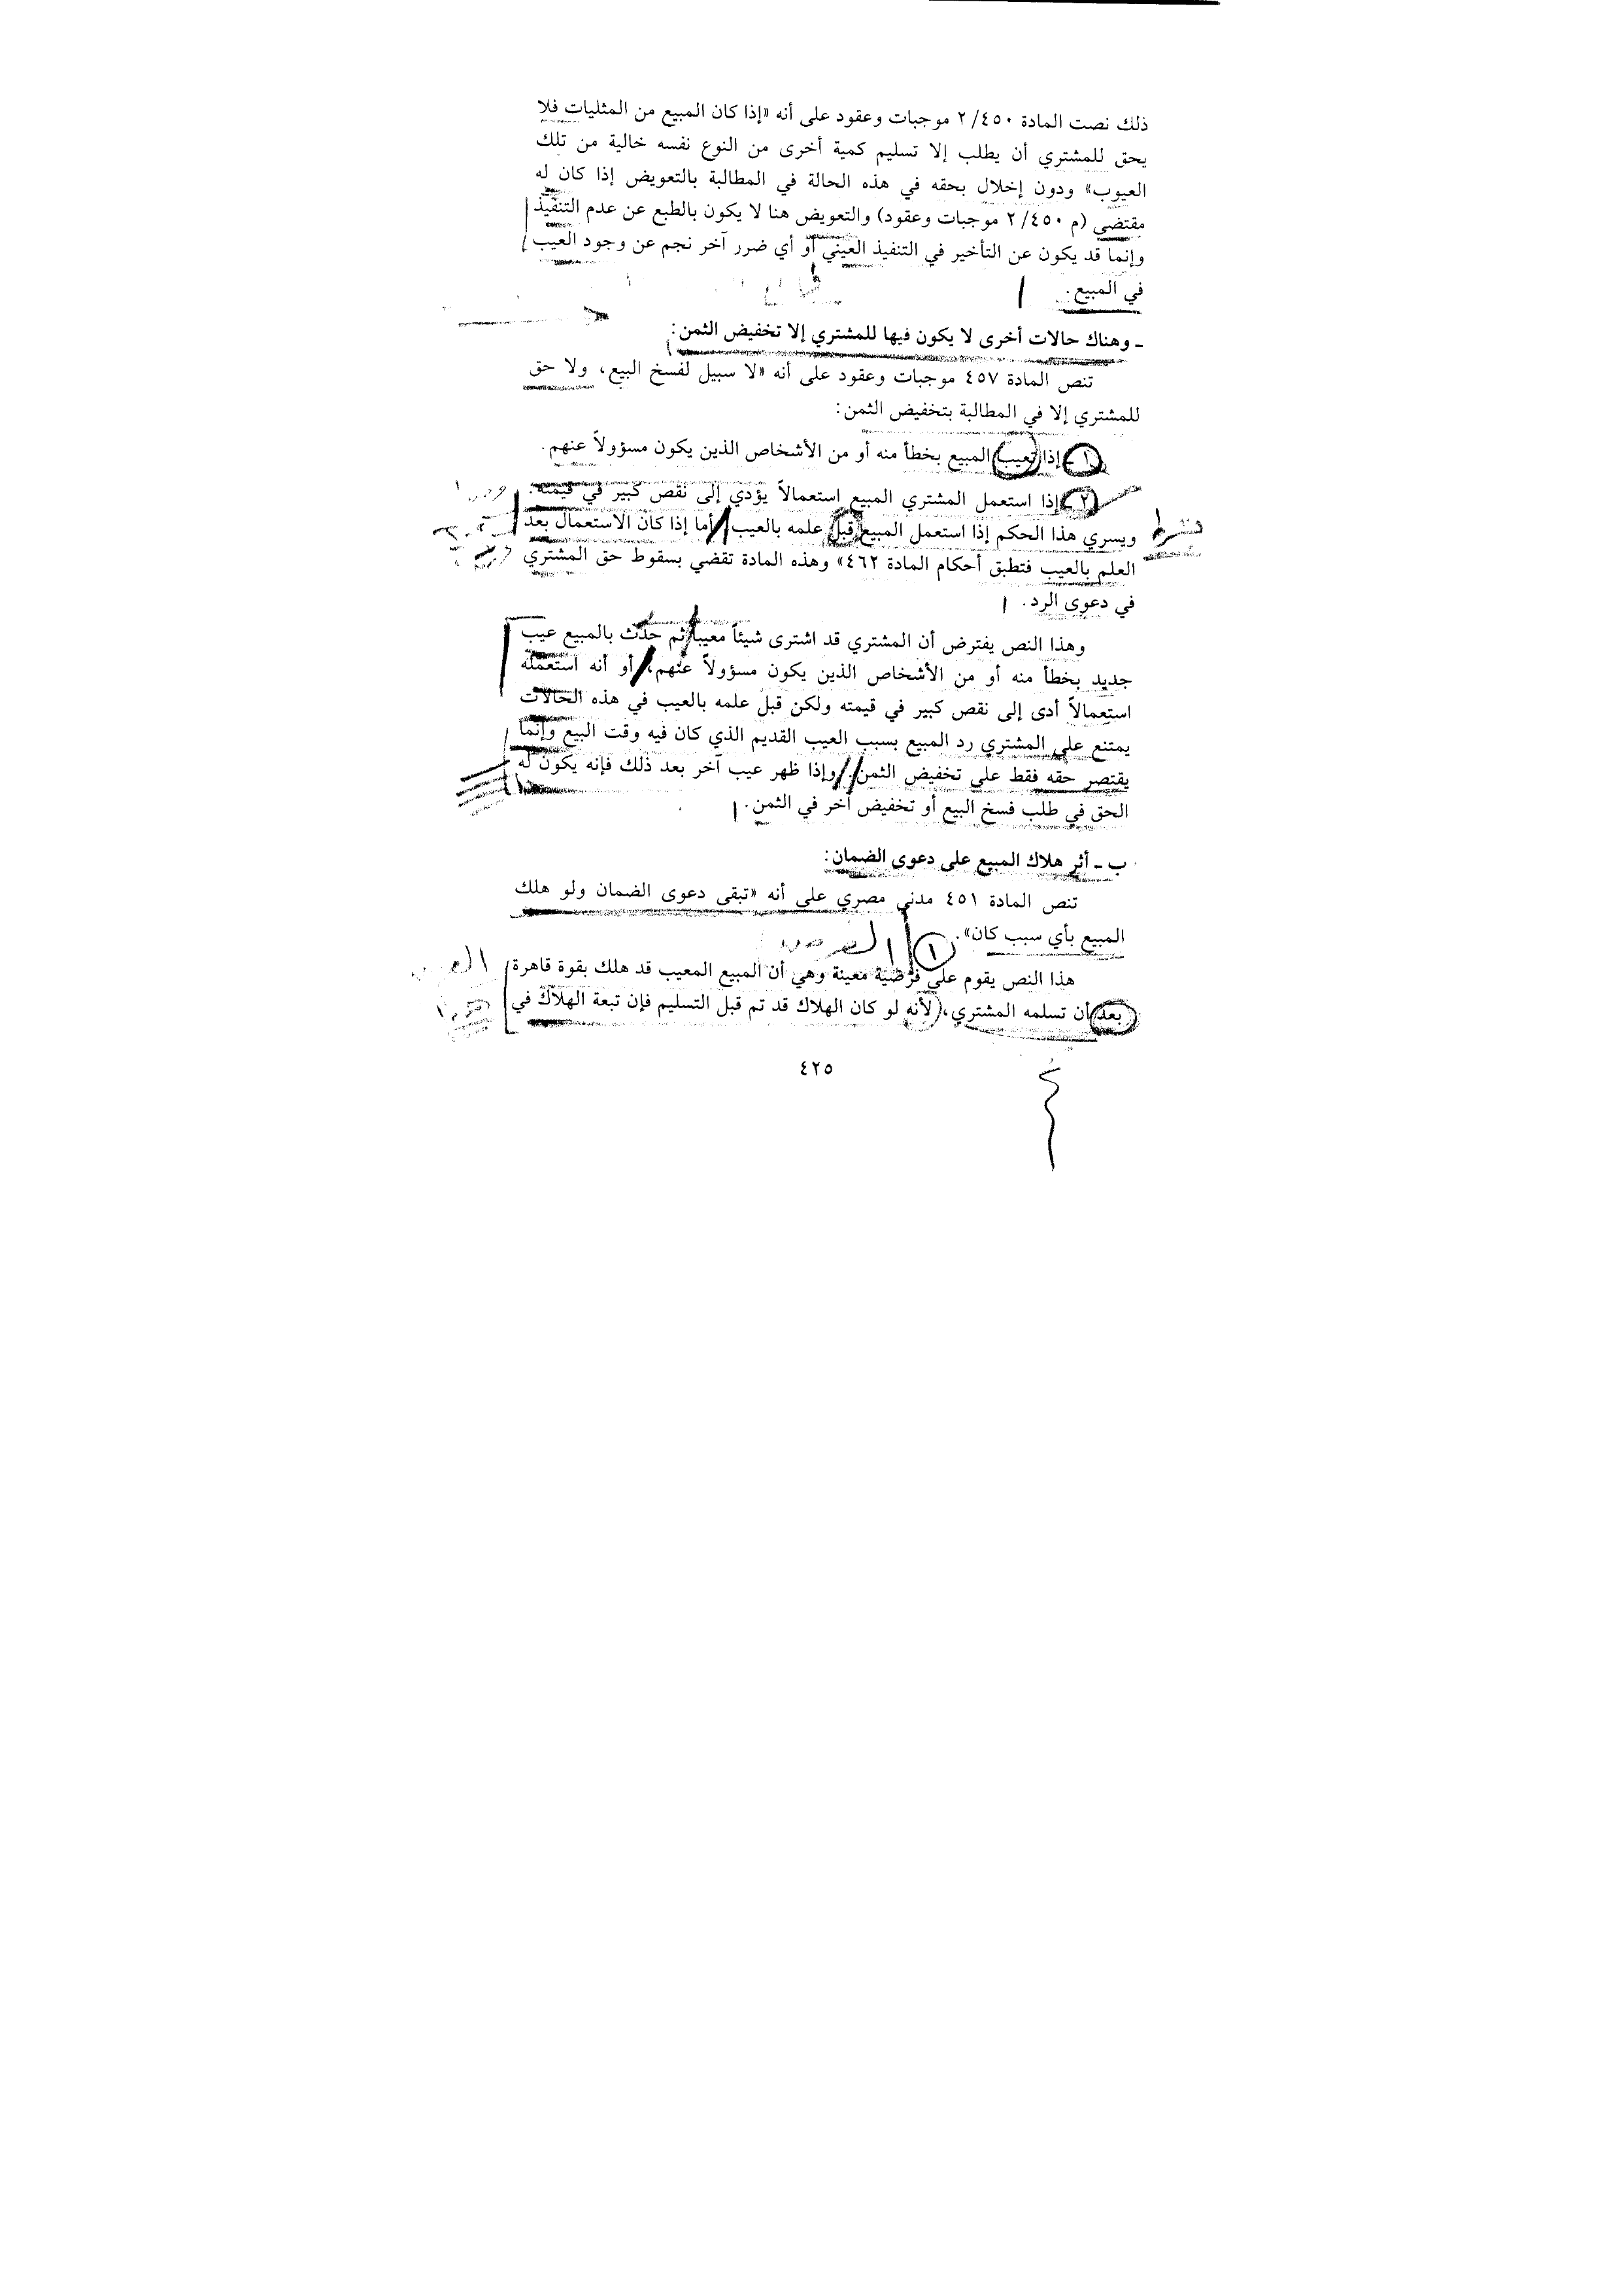 ذلك نصت المادة ٢/٤٥٠ موجبات وعقود على أنه «إذا كان المبيع من المثليات فلا
يحق للمشتري أن يطلب إلا تسليم كمية أخرى من النوع نفسه خالية من تلك
العيوب» ودون إخلال بحقه في هذه الحالة في المطالبة بالتعويض إذا كان له
مقتضى (م ٢/٤٥٠ موجبات وعقود) والتعويض هنا لا يكون بالطبع عن عدم التنفيذ
وإنما قد يكون عن التأخير في التنفيذ العيني أو أي ضرر آخر نجم عن وجود العيب
في المبيع.
ـ وهناك حالات أخرى لا يكون فيها للمشتري إلا تخفيض الثمن:
تنص المادة ٤٥٧ موجبات وعقود على أنه «لا سبيل لفسخ البيع، ولا حق
للمشتري إلا في المطالبة بتخفيض الثمن:
١ ـ إذا تعيب المبيع بخطأ منه أو من الأشخاص الذين يكون مسؤولاً عنهم.
٢ ـ إذا استعمل المشتري المبيع استعمالاً يؤدي إلى نقص كبير في قيمته.
ويسري هذا الحكم إذا استعمل المبيع قبل علمه بالعيب أما إذا كان الاستعمال بعد
العلم بالعيب فتطبق أحكام المادة ٤٦٢» وهذه المادة تقضي بسقوط حق المشتري
في دعوى الرد.
وهذا النص يفترض أن المشتري قد اشترى شيئاً معيباً ثم حدث بالمبيع عيب
جديد بخطأ منه أو من الأشخاص الذين يكون مسؤولاً عنهم، أو أنه استعمله
استعمالاً أدى إلى نقص كبير في قيمته ولكن قبل علمه بالعيب في هذه الحالات
يمتنع على المشتري رد المبيع بسبب العيب القديم الذي كان فيه وقت البيع وإنما
يقتصر حقه فقط على تخفيض الثمن. وإذا ظهر عيب آخر بعد ذلك فإنه يكون له
الحق في طلب فسخ البيع أو تخفيض آخر في الثمن.
ب ـ أثر هلاك المبيع على دعوى الضمان:
تنص المادة ٤٥١ مدني مصري على أنه «تبقى دعوى الضمان ولو هلك
المبيع بأي سبب كان».
١
هذا النص يقوم على فرضية معينة وهي أن المبيع المعيب قد هلك بقوة قاهرة
بعد أن تسلمه المشتري، لأنه لو كان الهلاك قد تم قبل التسليم فإن تبعة الهلاك في
٤٢٥